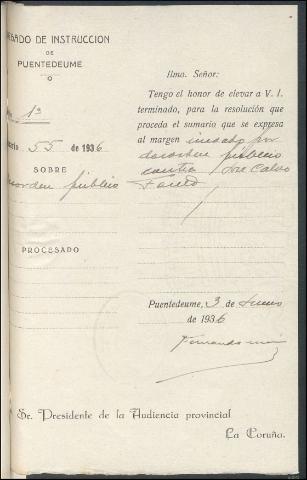 GADO DE INSTRUCCION
DE
PUENTEDEUME
1ª
ario 55 de 1936
SOBRE
sorden público
PROCESADO
Ilmo. Señor:
Tengo el honor de elevar a V. I.
terminado, para la resolución que
proceda el sumario que se expresa
al margen incoado por
desorden público
contra José Calvo
Puentedeume, 3 de Junio
de 1936
Fernando
Sr. Presidente de la Audiencia provincial
La Coruña.